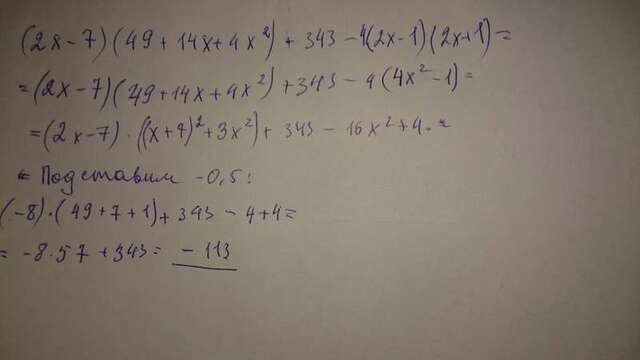 (2x-7)(49+14x+4x²)+343-4(2x-1)(2x+1)=
=(2x-7)(49+14x+4x²)+343-4(4x²-1)=
=(2x-7)·((x+7)²+3x²)+343-16x²+4.=
= Подставим -0,5:
(-8)·(49+7+1)+343-4+4=
= -8·57+343= -113